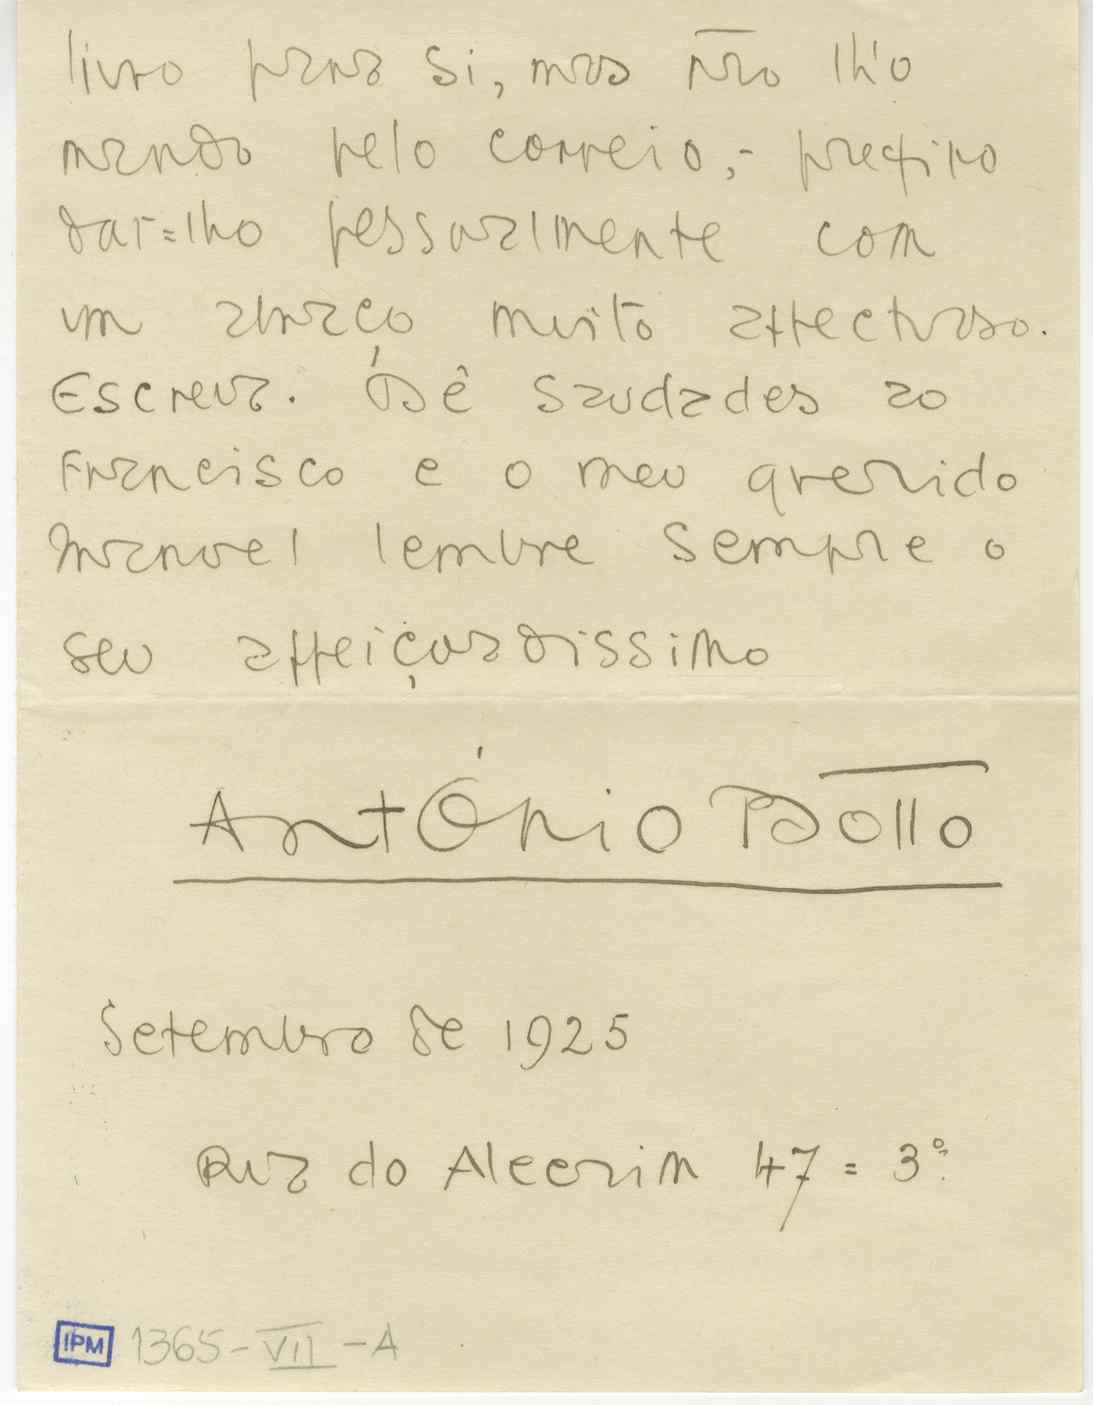 livro para si, mas não lh'o
mando pelo correio,- prefiro
dar=lho pessoalmente com
um abraço muito affectuoso.
Escreva. Dê saudades ao
Francisco e o meu querido
Manoel lembre sempre o
seu affeiçoadissimo
António Bôtto
Setembro de 1925
Rua do Alecrim 47 = 3º.
IPM 1365-VII-A